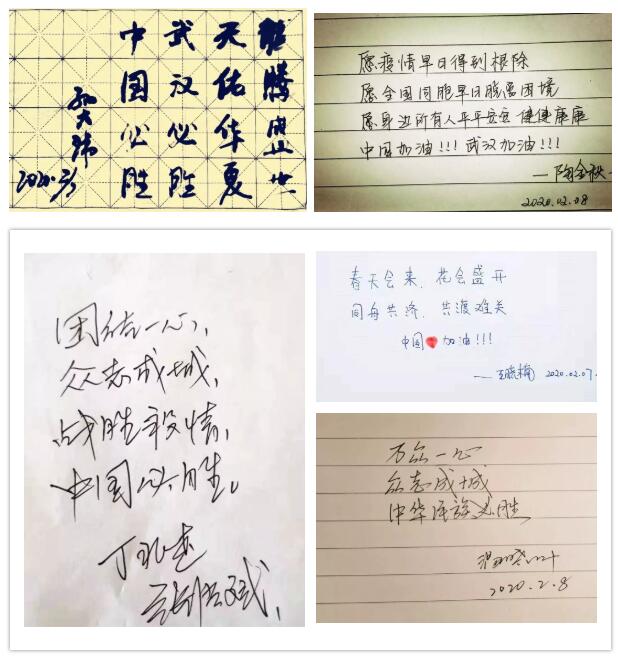 龍騰盛世
天佑华夏
武汉必胜
中国必胜
2020.2/1
愿疫情早日得到根除
愿全国同胞早日脱离困境
愿身边所有人平平安安 健健康康
中国加油!!! 武汉加油!!!
—陶金秋
2020.02.08
团结一心,
众志成城,
战胜疫情,
中国必胜。
春天会来，花会盛开
同舟共济，共渡难关
中国 加油!!!
—王晓楠 2020.02.07
万众一心
众志成城
中华民族必胜
2020.2.8